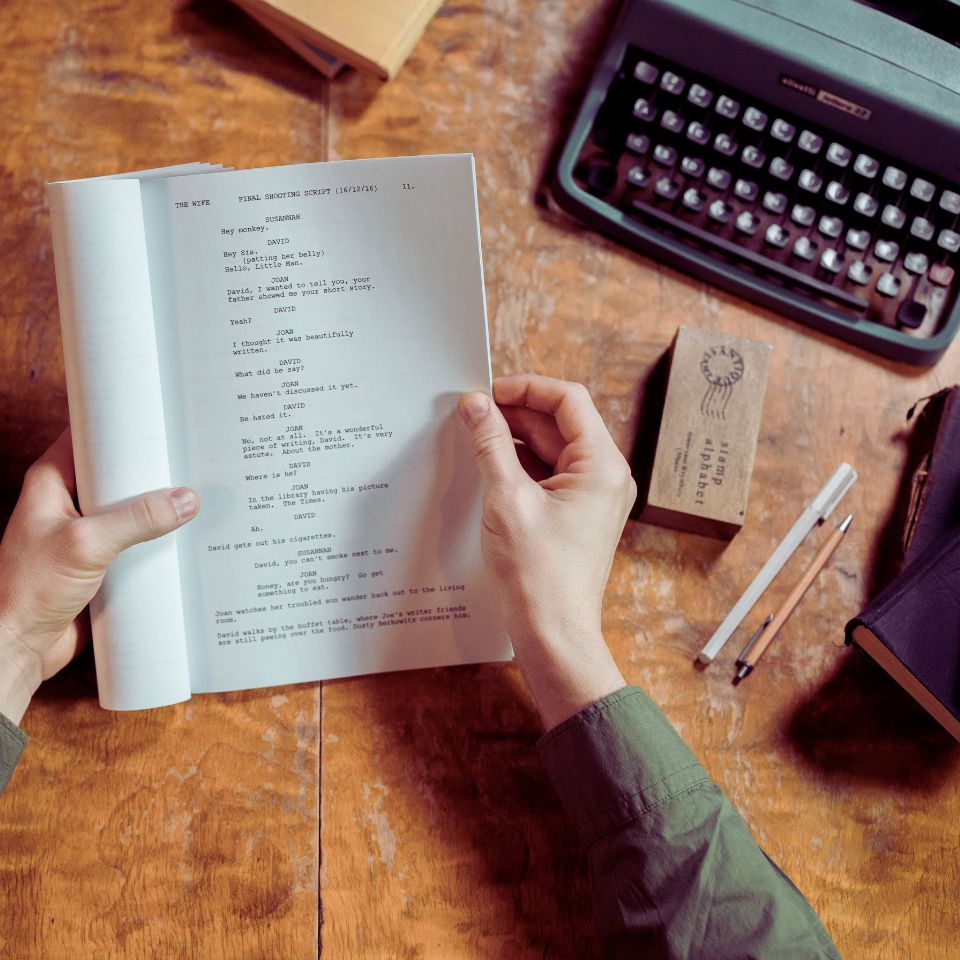 THE WIFE FINAL SHOOTING SCRIPT (16/12/16) 11.
SUSANNAH
Hey monkey.
DAVID
Hey Sis.
(patting her belly)
Hello, Little Man.
JOAN
David, I wanted to tell you, your
father showed me your short story.
DAVID
Yeah?
JOAN
I thought it was beautifully
written.
DAVID
What did he say?
JOAN
We haven't discussed it yet.
DAVID
He hated it.
JOAN
No, not at all. It's a wonderful
piece of writing, David. It's very
astute. About the mother.
DAVID
Where is he?
JOAN
In the library having his picture
taken. The Times.
DAVID
Ah.
David gets out his cigarettes.
SUSANNAH
David, you can't smoke next to me.
JOAN
Honey, are you hungry? Go get
something to eat.
Joan watches her troubled son wander back out to the living
room.
David walks by the buffet table, where Joe's writer friends
are still pawing over the food. Dusty Berkowitz corners him.
olivetti lettera 22
stamp
alphabet